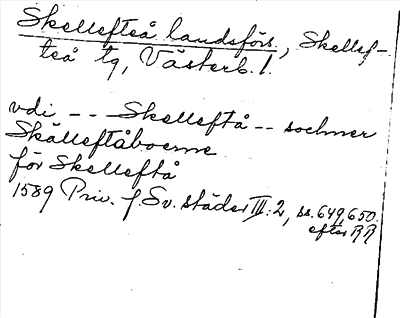 Skellefteå landsförs., Skellef-
teå tg, Västerb. l.
vdi -- Skelleftå -- sochner
Skälleftåboerne
för Skelleftå
1589 Priv. f. Sv. städer III:2, ss. 649, 650.
efter RR